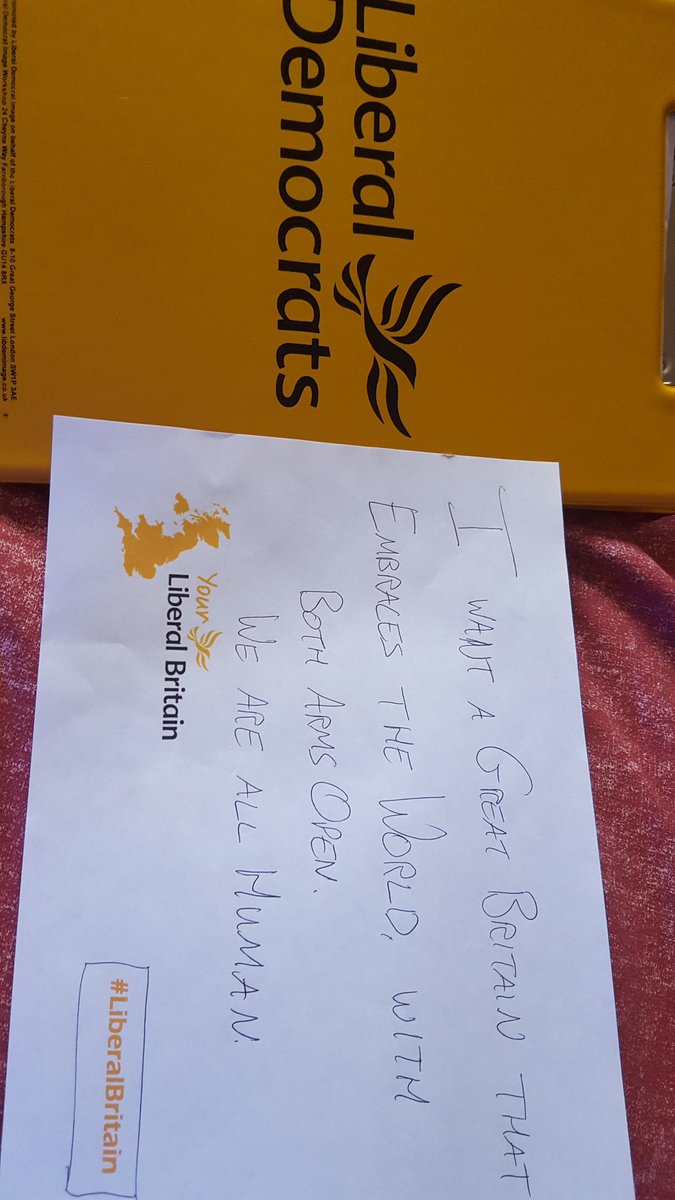 Liberal
Democrats
Promoted by Liberal Democrat Image on behalf of the Liberal Democrats 8-10 Great George Street London SW1P 3AE
Liberal Democrat Image Workshop 24 Cheyne Way Farnborough Hampshire GU14 8RX www.libdemimage.co.uk
I WANT A GREAT BRITAIN THAT
EMBRACES THE WORLD, WITH
BOTH ARMS OPEN.
WE ARE ALL HUMAN.
Your
Liberal Britain
#LiberalBritain